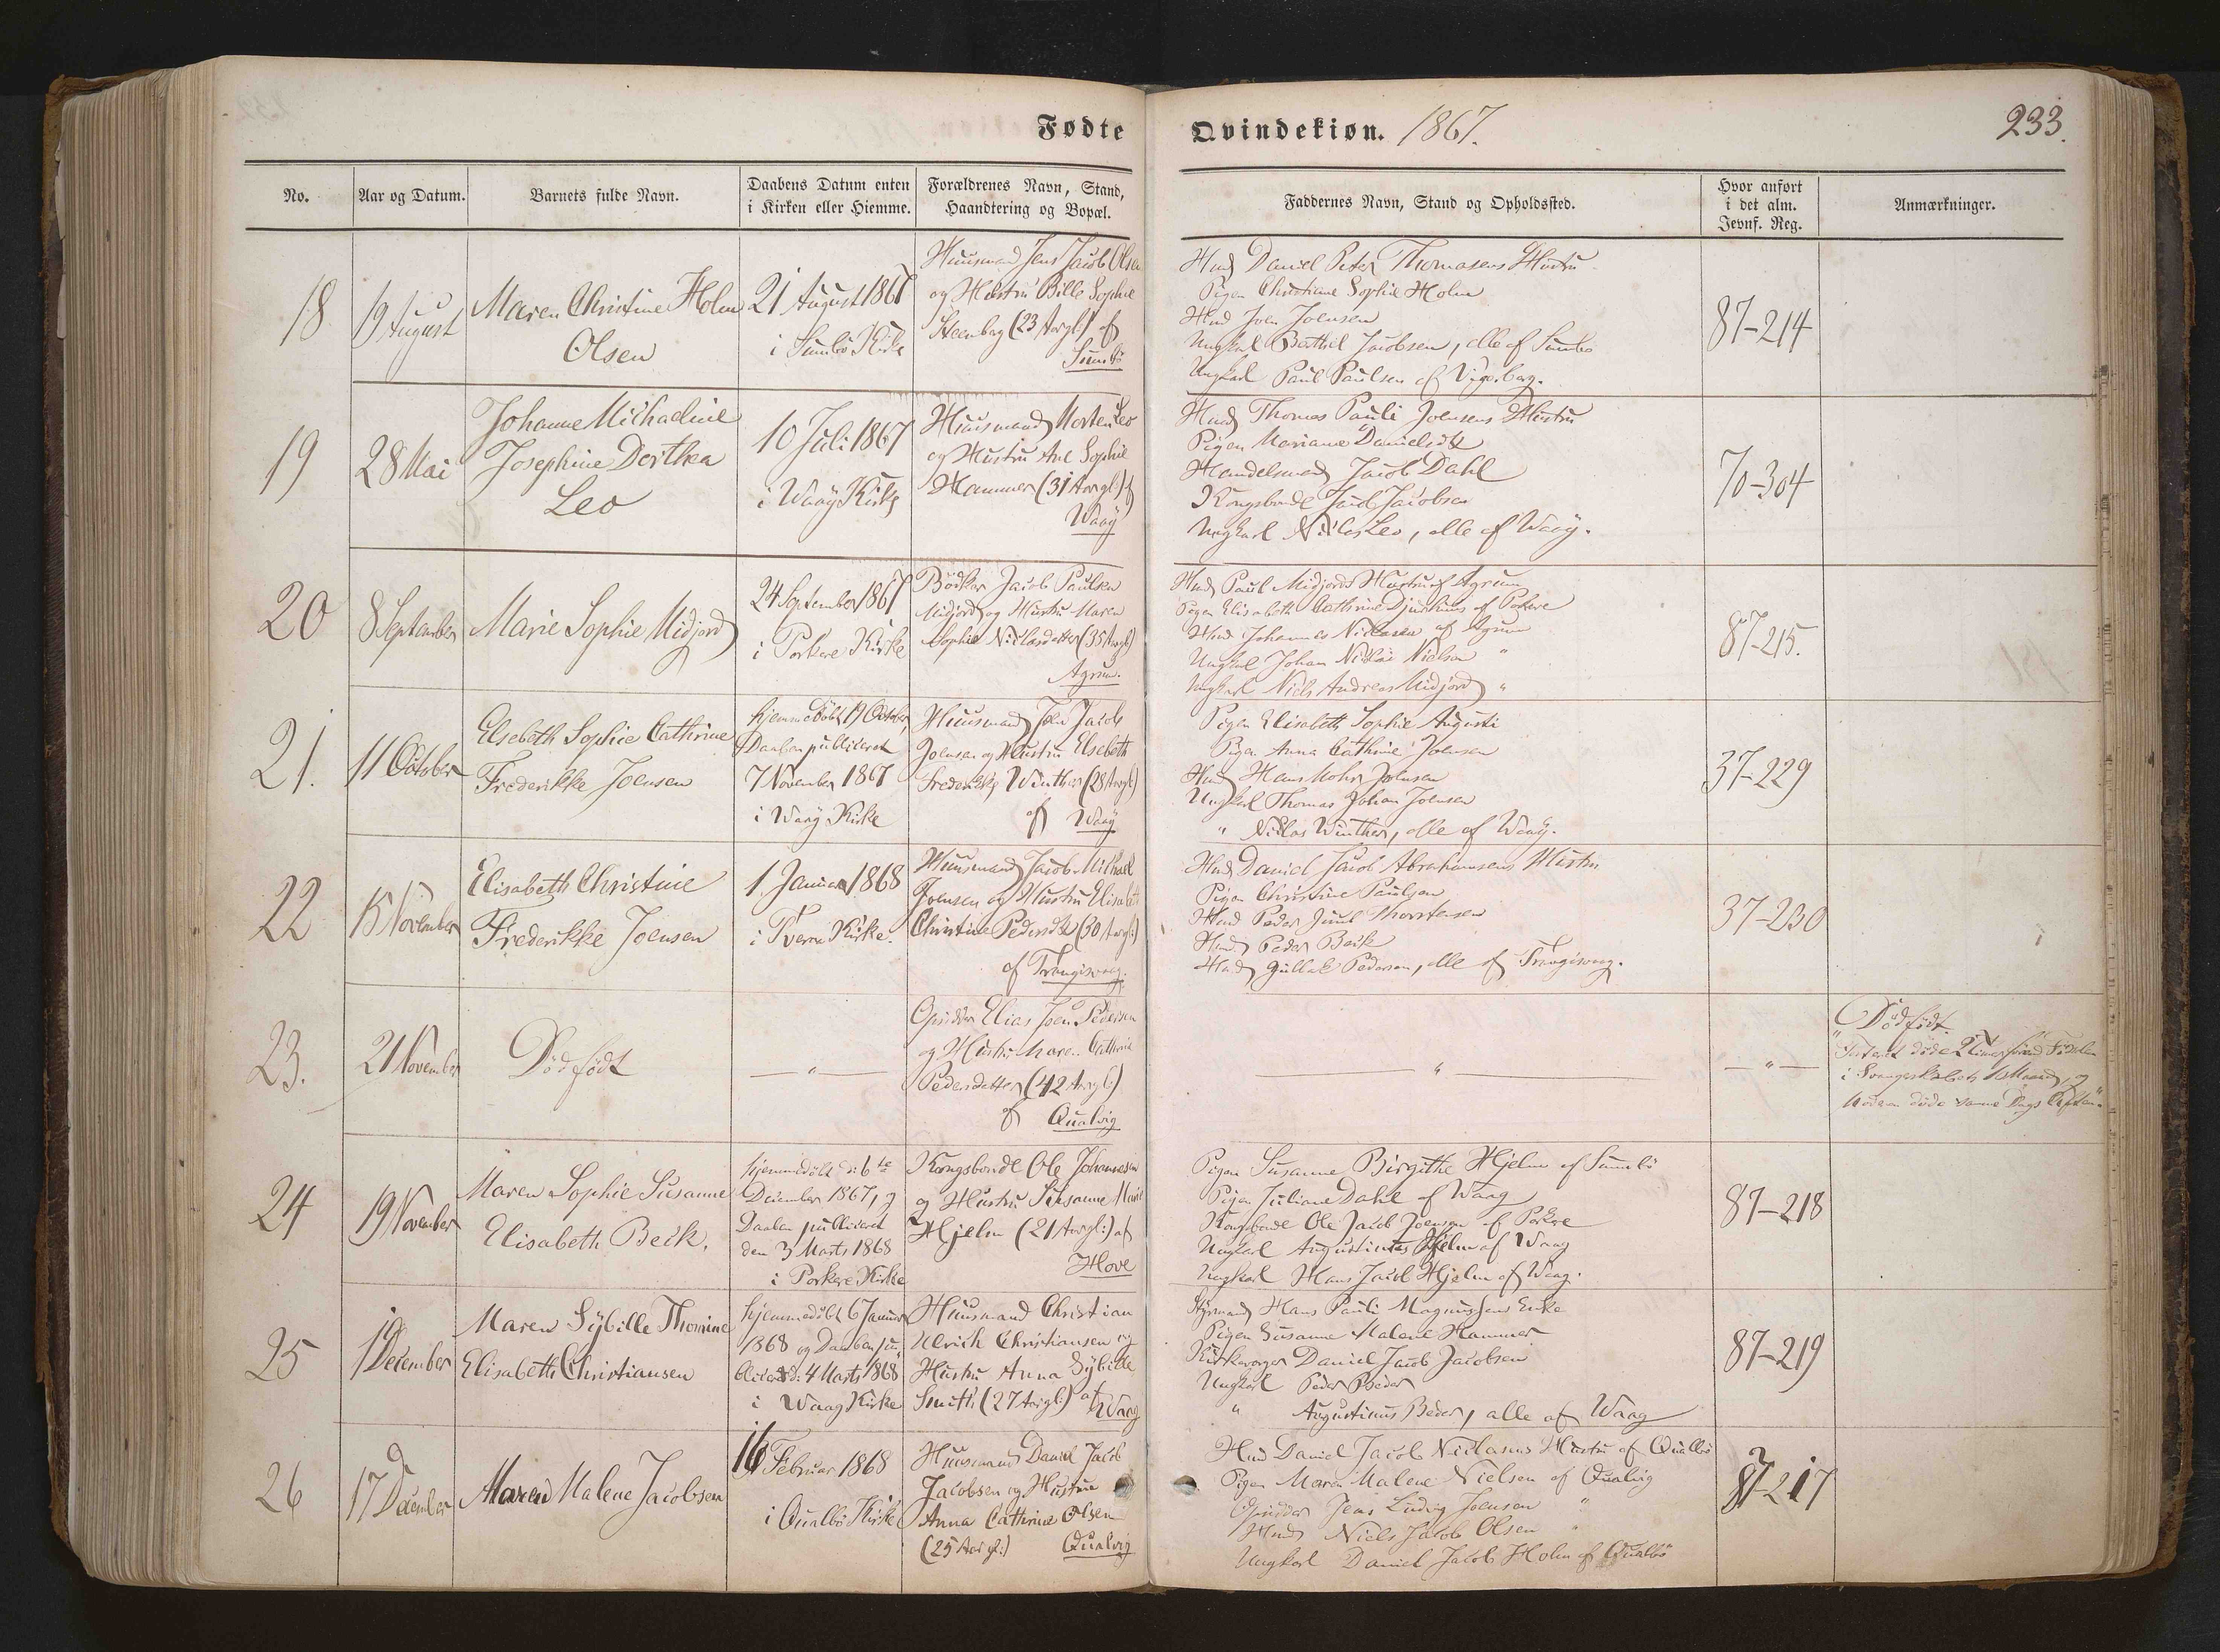 Fødte
Qvindekiøn. 1867.
233.
No.
Aar og Datum.
Barnets fulde Navn.
Daabens Datum enten
i Kirken eller Hiemme.
Forældrenes Navn, Stand,
Haandtering og Bopæl.
Faddernes Navn, Stand og Opholdssted.
Hvor anført
i det alm.
Jevnf. Reg.
Anmærkninger.
18
19 August
Maren Christine Holm
Olsen
21 August 1867
i Sumbö Kirke
Huusmand Jens Jacob Olsen
og Hustru Bille Sophie
(23 Aar gl.) af
Sumbö
Huusmd Daniel Peter Thomasens Hustru
Pigen Christiane Sophie Holm
Huusmd Joen Joensen
Ungkarl Bathel Jacobsen, alle af Sumbö
Ungkarl Paul Paulsen af
87-214
19
28 Mai
Johanne Michaeline
Josephine Dorthea
Leo
10 Juli 1867
i Waag Kirke
Huusmand Morten Leo
og Hustru Ane Sophie
Hammer (31 Aar gl.) af
Waag
Huusmd Thomas Pauli Joensens Hustru
Pigen Mariane Danielsdtr
Handelsmand Jacob Dahl
Kongsbonde Jacob Jacobsen
Ungkarl Niclas Leo, alle af Waag.
70-304
20
8 September
Marie Sophie Midjord
24 September 1867
i Porkere Kirke
Bödker Jacob Paulsen
Midjord og Hustru Maren
Sophie Niclasdatter (35 Aar gl.)
Agrum.
Huusmd Paul Midjords Hustru af Agrum
Pigen Elisabeth Cathrine Djurhuus af Porkere
Huusmd Johannes Niclasen af Agrum
Ungkarl Johan Nicolai Nielsen "
Ungkarl Niels Andreas Midjord "
87-215.
21.
11 October
Elsebeth Sophie Cathrine
Frederikke Joensen
Hjemmedöbt 19 October,
Daaben publiceret
7 November 1867
i Waag Kirke
Huusmand Joen Jacob
Joensen og Hustru Elsebeth
Frederikke Winther (28 Aar gl.)
af Waag
Pigen Elisabeth Sophie Augusti
Pigen Anna Cathrine Joensen
Huusmd Hans Mohr Joensen
Ungkarl Thomas Johan Joensen
" Niclas Winther, alle af Waag.
37-229
22
15 November
Elisabeth Christine
Frederikke Joensen
1 Januar 1868
i Tveraa Kirke.
Huusmand Jacob Michael
Joensen og Hustru Elisabeth
Christine Pedersdtr (30 Aar gl.)
af Trangisvaag.
Huusmd Daniel Jacob Abrahamsens Hustru
Pigen Christine Paulsen
Huusmd Peder Juul Thorstensen
Huusmd Peder Beck
Huusmd Gullak Pedersen, alle af Trangisvaag.
37-230
23.
21 November
Dödfödt
— " —
Opsidder Elias Joen Pedersen
og Hustru Maren Cathrine
Pedersdatter (42 Aar gl.)
af Qualvig
— " —
— " —
Dödfödt.
"Fosteret döde 2 Timer förend Födselen
i Svangerskabets Maaned, og
Moderen döde samme Dags Aften."
24
19 November
Maren Sophie Susanne
Elisabeth Beck.
Hjemmedöbt d: 6te
December 1867, og
Daaben publiceret
den 3 Marts 1868
i Porkere Kirke
Kongsbonde Ole Johannesen
og Hustru Susanne Marie
Hjelm (21 Aar gl.) af
Hove
Pigen Susanne Birgithe Hjelm af Sumbö
Pigen Juliane Dahl af Waag
Kongsbonde Ole Jacob Joensen af Porkere
Ungkarl Augustinus Hjelm af Waag
Ungkarl Hans Jacob Hjelm af Waag.
87-218
25
19 December
Maren Sybille Thomine
Elisabeth Christiansen
Hjemmedöbt 6 Januar
1868 og Daaben pu-
bliceret d: 4 Marts 1868
i Waag Kirke
Huusmand Christian
Ulrich Christiansen og
Hustru Anna Sybille
Smith (27 Aar gl.) af
Waag
Styrmand Hans Pauli Magnussens Enke
Pigen Susanne Malene Hammer
Kirkeværger Daniel Jacob Jacobsen
Ungkarl Peder Beder
" Augustinus Beder, alle af Waag
87-219
26
17 December
Maren Malene Jacobsen
16 Februar 1868
i Qualbö Kirke
Huusmand Daniel Jacob
Jacobsen og Hustrue
Anna Cathrine Olsen
(25 Aar gl.) Qualvig
Huusmd Daniel Jacob Niclasens Hustru af Qualbö
Pigen Maren Malene Nielsen af Qualvig
Opsidder Jens Ludvig Joensen "
Huusmd Niels Jacob Olsen "
Ungkarl Daniel Jacob Holm af Qualbö
87-217